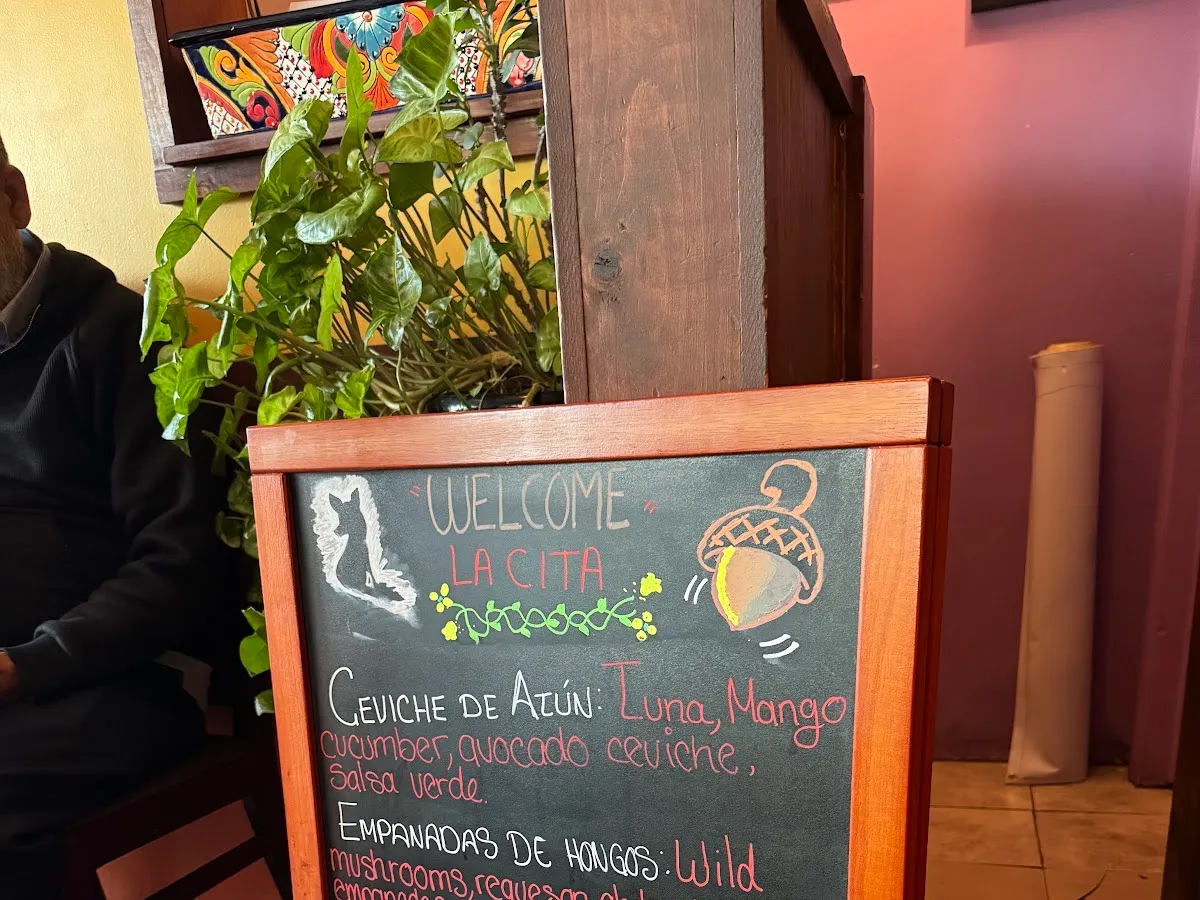 "WELCOME"
LA CITA
CEVICHE DE ATÚN: Tuna, Mango
cucumber, avocado ceviche,
salsa verde.
EMPANADAS DE HONGOS: Wild
mushrooms, requeson
empanadas